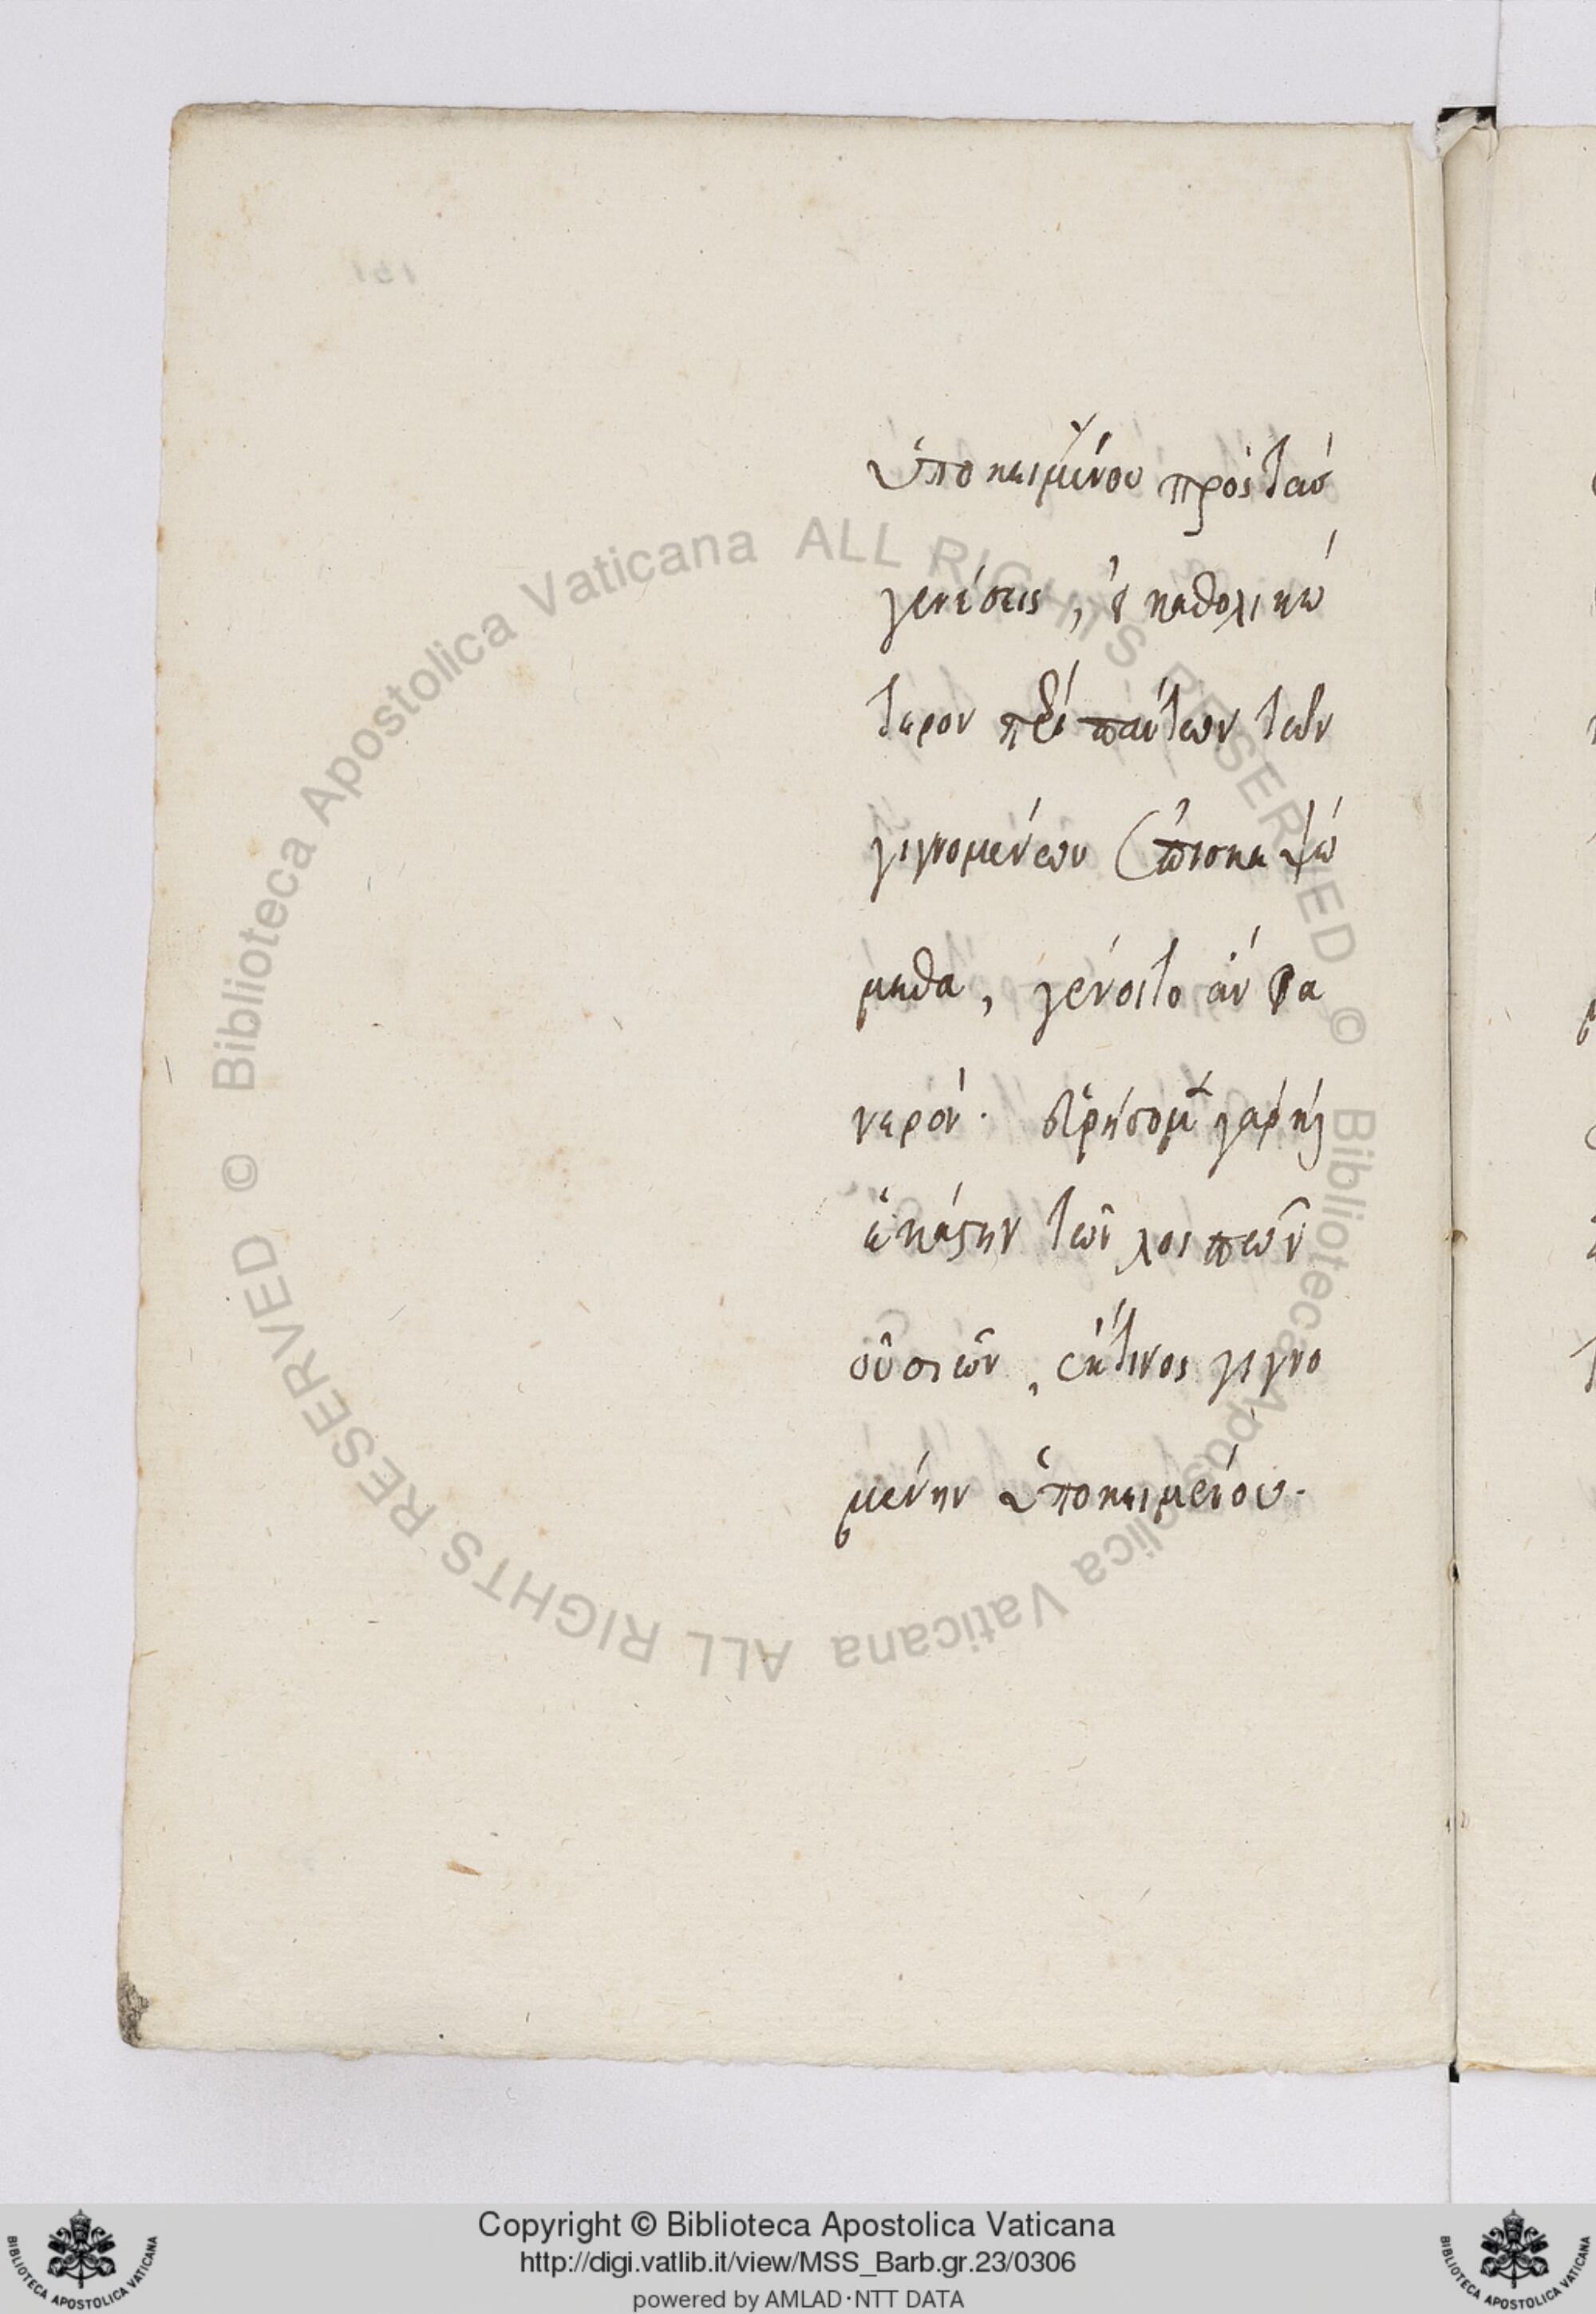 ὑποκειμένου πρὸς τὰς
γενέσεις, ἢ καθολικώ
τερον περὶ πάντων τῶν
γιγνομένων ἐπισκεψώ
μεθα, γένοιτο ἂν φα
νερόν. εὑρήσομεν γὰρ καὶ
ἑκάστην τῶν λοιπῶν
οὐσιῶν, ἔκ τινος γιγνο
μένην ὑποκειμένου.
© Biblioteca Apostolica Vaticana ALL RIGHTS RESERVED © Biblioteca Apostolica Vaticana ALL RIGHTS RESERVED
Copyright © Biblioteca Apostolica Vaticana
http://digi.vatlib.it/view/MSS_Barb.gr.23/0306
powered by AMLAD·NTT DATA
BIBLIOTECA APOSTOLICA VATICANA
BIBLIOTECA APOSTOLICA VATICANA